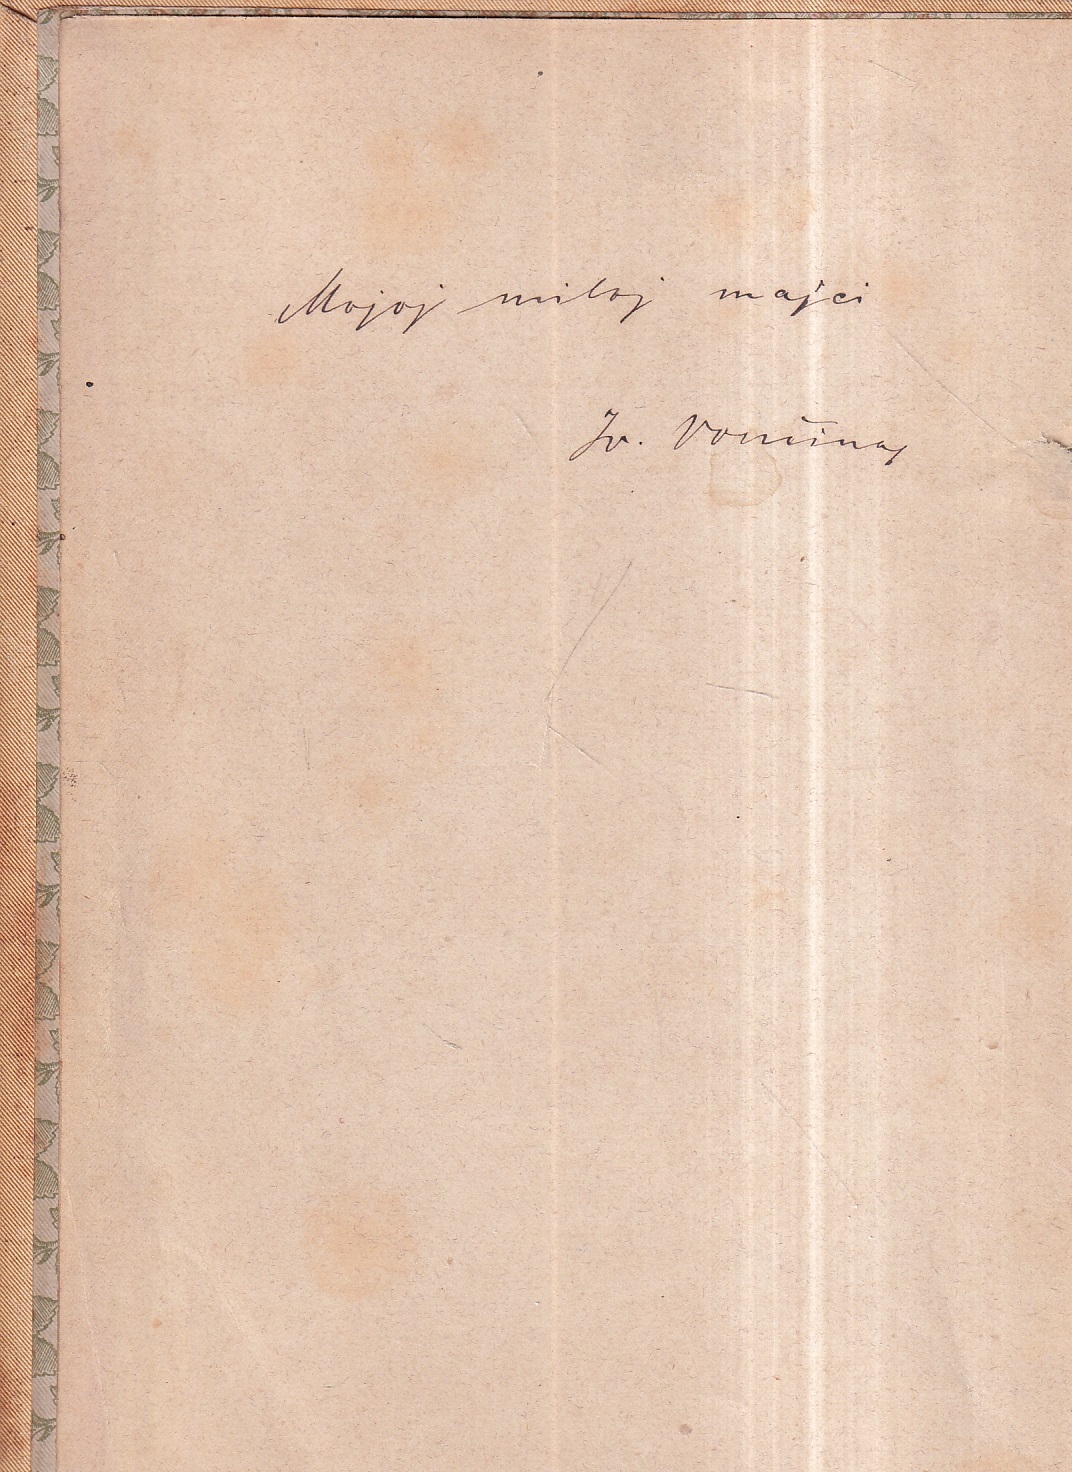 Mojoj miloj majci
Iv. Vončina